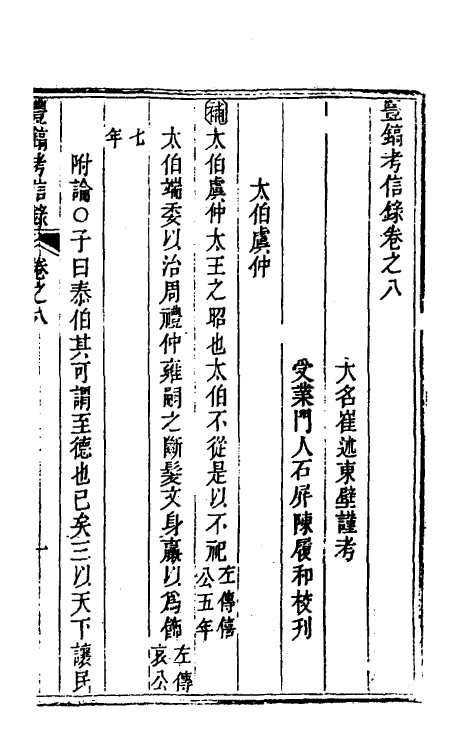 豐鎬考信錄卷之八
大名崔述東壁謹考
受業門人石屏陳履和校刋
太伯虞仲
補太伯虞仲太王之昭也太伯不從是以不祀左傳僖公五年
太伯端委以治周禮仲雍嗣之斷髮文身臝以爲飾左傳哀公
七年
附論○子曰泰伯其可謂至德也已矣三以天下讓民
豐鎬考信錄 卷之八 一